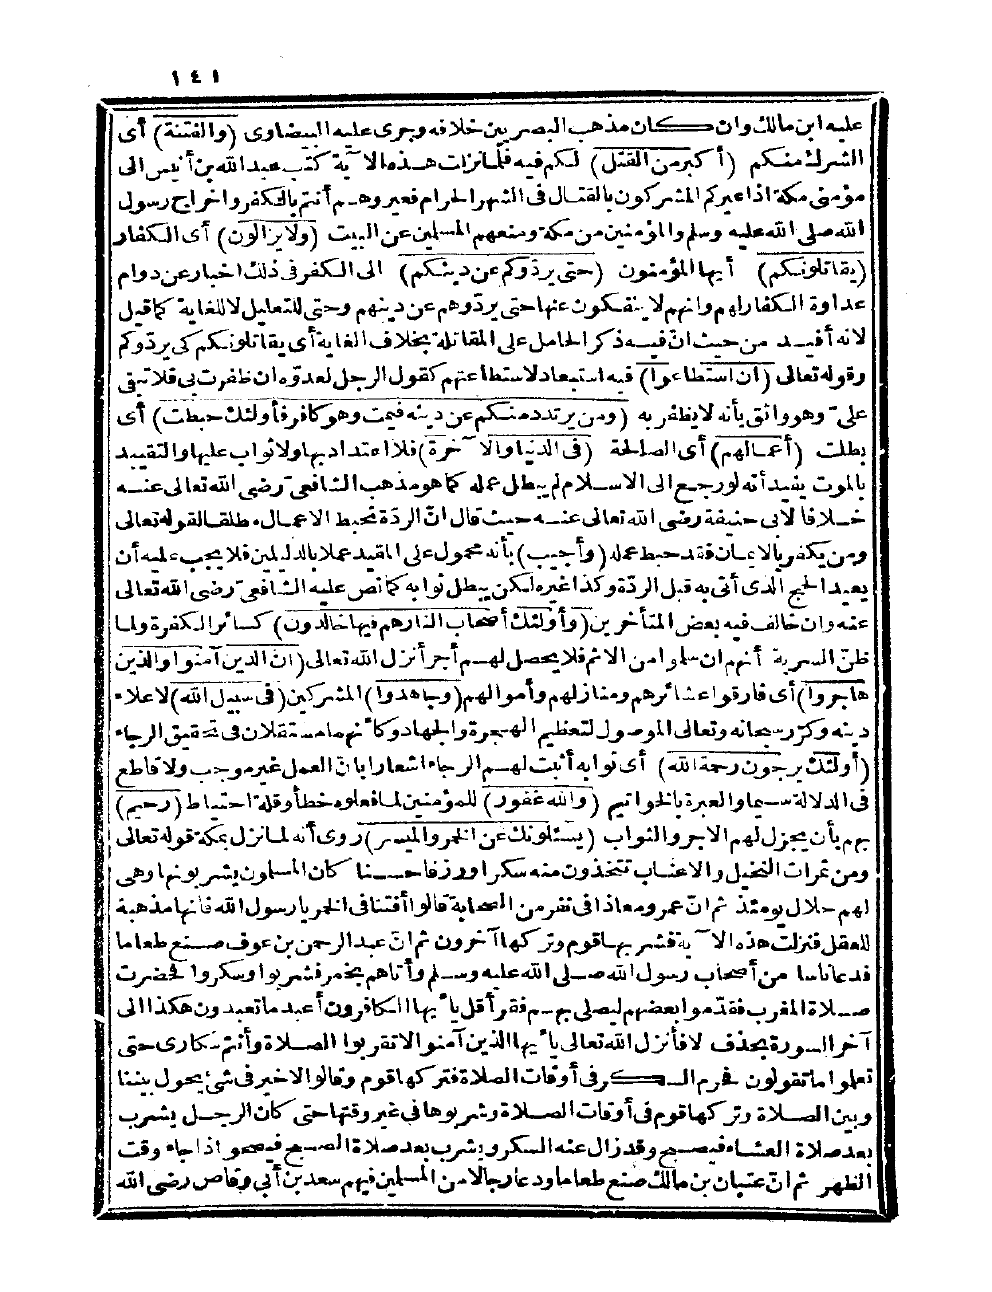 ١٤١
عليه ابن مالك وان كان مذهب البصريين خلافه وجرى عليه البيضاوى (والفتنة) أى
الشرك منكم (أكبر من القتل) لكم فيه فلما نزلت هذه الآية كتب عبد الله بن أنيس الى
مؤمنى مكة اذا عيركم المشركون بالقتال فى الشهر الحرام فعيروهم أنتم بالكفر واخراج رسول
الله صلى الله عليه وسلم والمؤمنين من مكة ومنعهم المسلمين عن البيت (ولا يزالون) أى الكفار
(يقاتلونكم) أيها المؤمنون (حتى يردّوكم عن دينكم) الى الكفر فى ذلك اخبار عن دوام
عداوة الكفار لهم وانهم لا ينفكون عنها حتى يردّوهم عن دينهم وحتى للتعليل لا للغاية كما قيل
لانه أفيد من حيث انّ فيه ذكر الحامل على المقاتلة بخلاف الغاية أى يقاتلونكم كى يردّوكم
وقوله تعالى (ان استطاعوا) فيه استبعاد لاستطاعتهم كقول الرجل لعدوّه ان ظفرت بى فلا تبقى
علىّ وهو واثق بأنه لا يظفر به (ومن يرتدد منكم عن دينه فيمت وهو كافر فأولئك حبطت) أى
بطلت (أعمالهم) أى الصالحة (فى الدنيا والآخرة) فلا اعتداد بها ولا ثواب عليها والتقييد
بالموت يفيد أنه لو رجع الى الاسلام لم يبطل عمله كما هو مذهب الشافعىّ رضى الله تعالى عنه
خلافا لابى حنيفة رضى الله تعالى عنه حيث قال انّ الردّة تحبط الاعمال مطلقا لقوله تعالى
ومن يكفر بالايمان فقد حبط عمله (وأجيب) بأنه محمول على المقيد عملا بالدليلين فلا يجب عليه أن
يعيد الحج الذى أتى به قبل الردّة وكذا غيره لكن يبطل ثوابه كما نص عليه الشافعىّ رضى الله تعالى
عنه وان خالف فيه بعض المتأخرين (وأولئك أصحاب النار هم فيها خالدون) كسائر الكفرة ولما
ظنّ السرية أنهم ان سلموا من الاثم فلا يحصل لهم أجر أنزل الله تعالى (انّ الذين آمنوا والذين
هاجروا) أى فارقوا عشائرهم ومنازلهم وأموالهم (وجاهدوا) المشركين (فى سبيل الله) لاعلاء
دينه وكرّر سبحانه وتعالى الموصول لتعظيم الهجرة والجهاد وكأنهما مستقلان فى تحقيق الرجاء
(أولئك يرجون رحمة الله) أى ثوابه أثبت لهم الرجاء اشعارا بانّ العمل غير موجب ولا قاطع
فى الدلالة سيما والعبرة بالخواتيم (والله غفور) للمؤمنين لما فعلوه خطأ وقلة احتياط (رحيم)
بهم بأن يجزل لهم الاجر والثواب (يسئلونك عن الخمر والميسر) روى أنه لما نزل بمكة قوله تعالى
ومن ثمرات النخيل والاعناب تتخذون منه سكرا ورزقا حسنا كان المسلمون يشربونها وهى
لهم حلال يومئذ ثم انّ عمر ومعاذا فى نفر من الصحابة قالوا أفتنا فى الخمر يا رسول الله فانها مذهبة
للعقل فنزلت هذه الآية فشربها قوم وتركها آخرون ثم انّ عبد الرحمن بن عوف صنع طعاما
فدعا ناسا من أصحاب رسول الله صلى الله عليه وسلم وأتاهم بخمر فشربوا وسكروا فحضرت
صلاة المغرب فقدّموا بعضهم ليصلى بهم فقرأ قل يا أيها الكافرون أعبد ما تعبدون هكذا الى
آخر السورة بحذف لا فأنزل الله تعالى يا أيها الذين آمنوا لا تقربوا الصلاة وأنتم سكارى حتى
تعلموا ما تقولون فحرم السكر فى أوقات الصلاة فتركها قوم وقالوا لا خير فى شئ يحول بيننا
وبين الصلاة وتركها قوم فى أوقات الصلاة وشربوها فى غير وقتها حتى كان الرجل يشرب
بعد صلاة العشاء فيصبح وقد زال عنه السكر ويشرب بعد صلاة الصبح فيصحو اذا جاء وقت
الظهر ثم انّ عتبان بن مالك صنع طعاما ودعا رجالا من المسلمين فيهم سعد بن أبى وقاص رضى الله